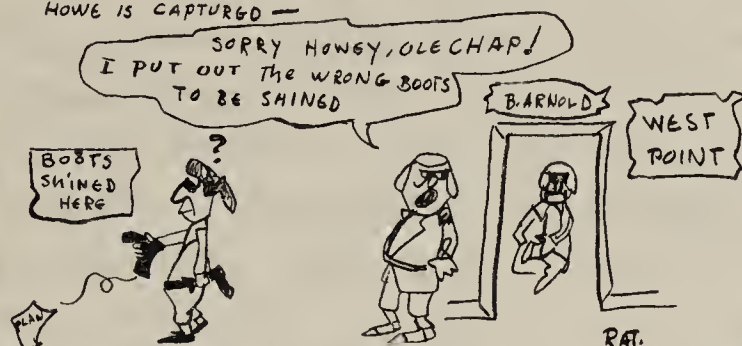 HOWE IS CAPTURED —
SORRY HOWEY, OLE CHAP!
I PUT OUT The WRONG BOOTS
TO BE SHINED
B. ARNOLD
WEST
POINT
BOOTS
SHINED
HERE
?
PLAN
RAT.